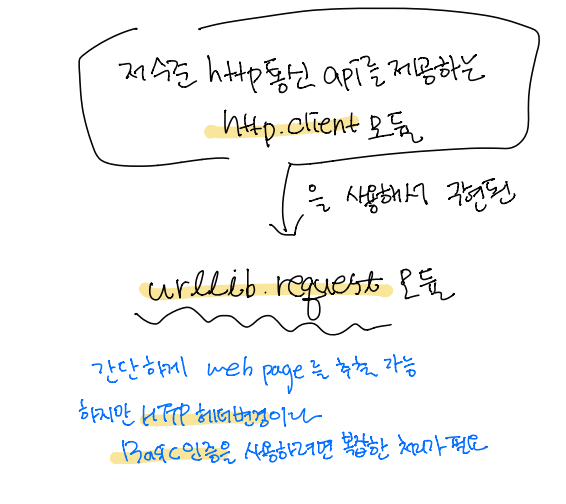 저수준 http통신 api를 제공하는
http.client 모듈
을 사용해서 구현된
urllib.request 모듈
간단하게 web page를 추출 가능
하지만 HTTP 헤더변경이나
Basic인증을 사용하려면 복잡한 처리가 필요